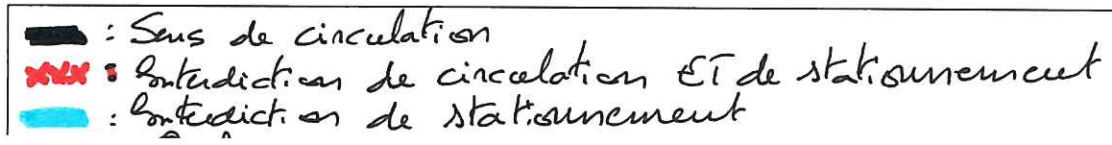 : Sens de circulation
: Interdiction de circulation ET de stationnement
: Interdiction de stationnement